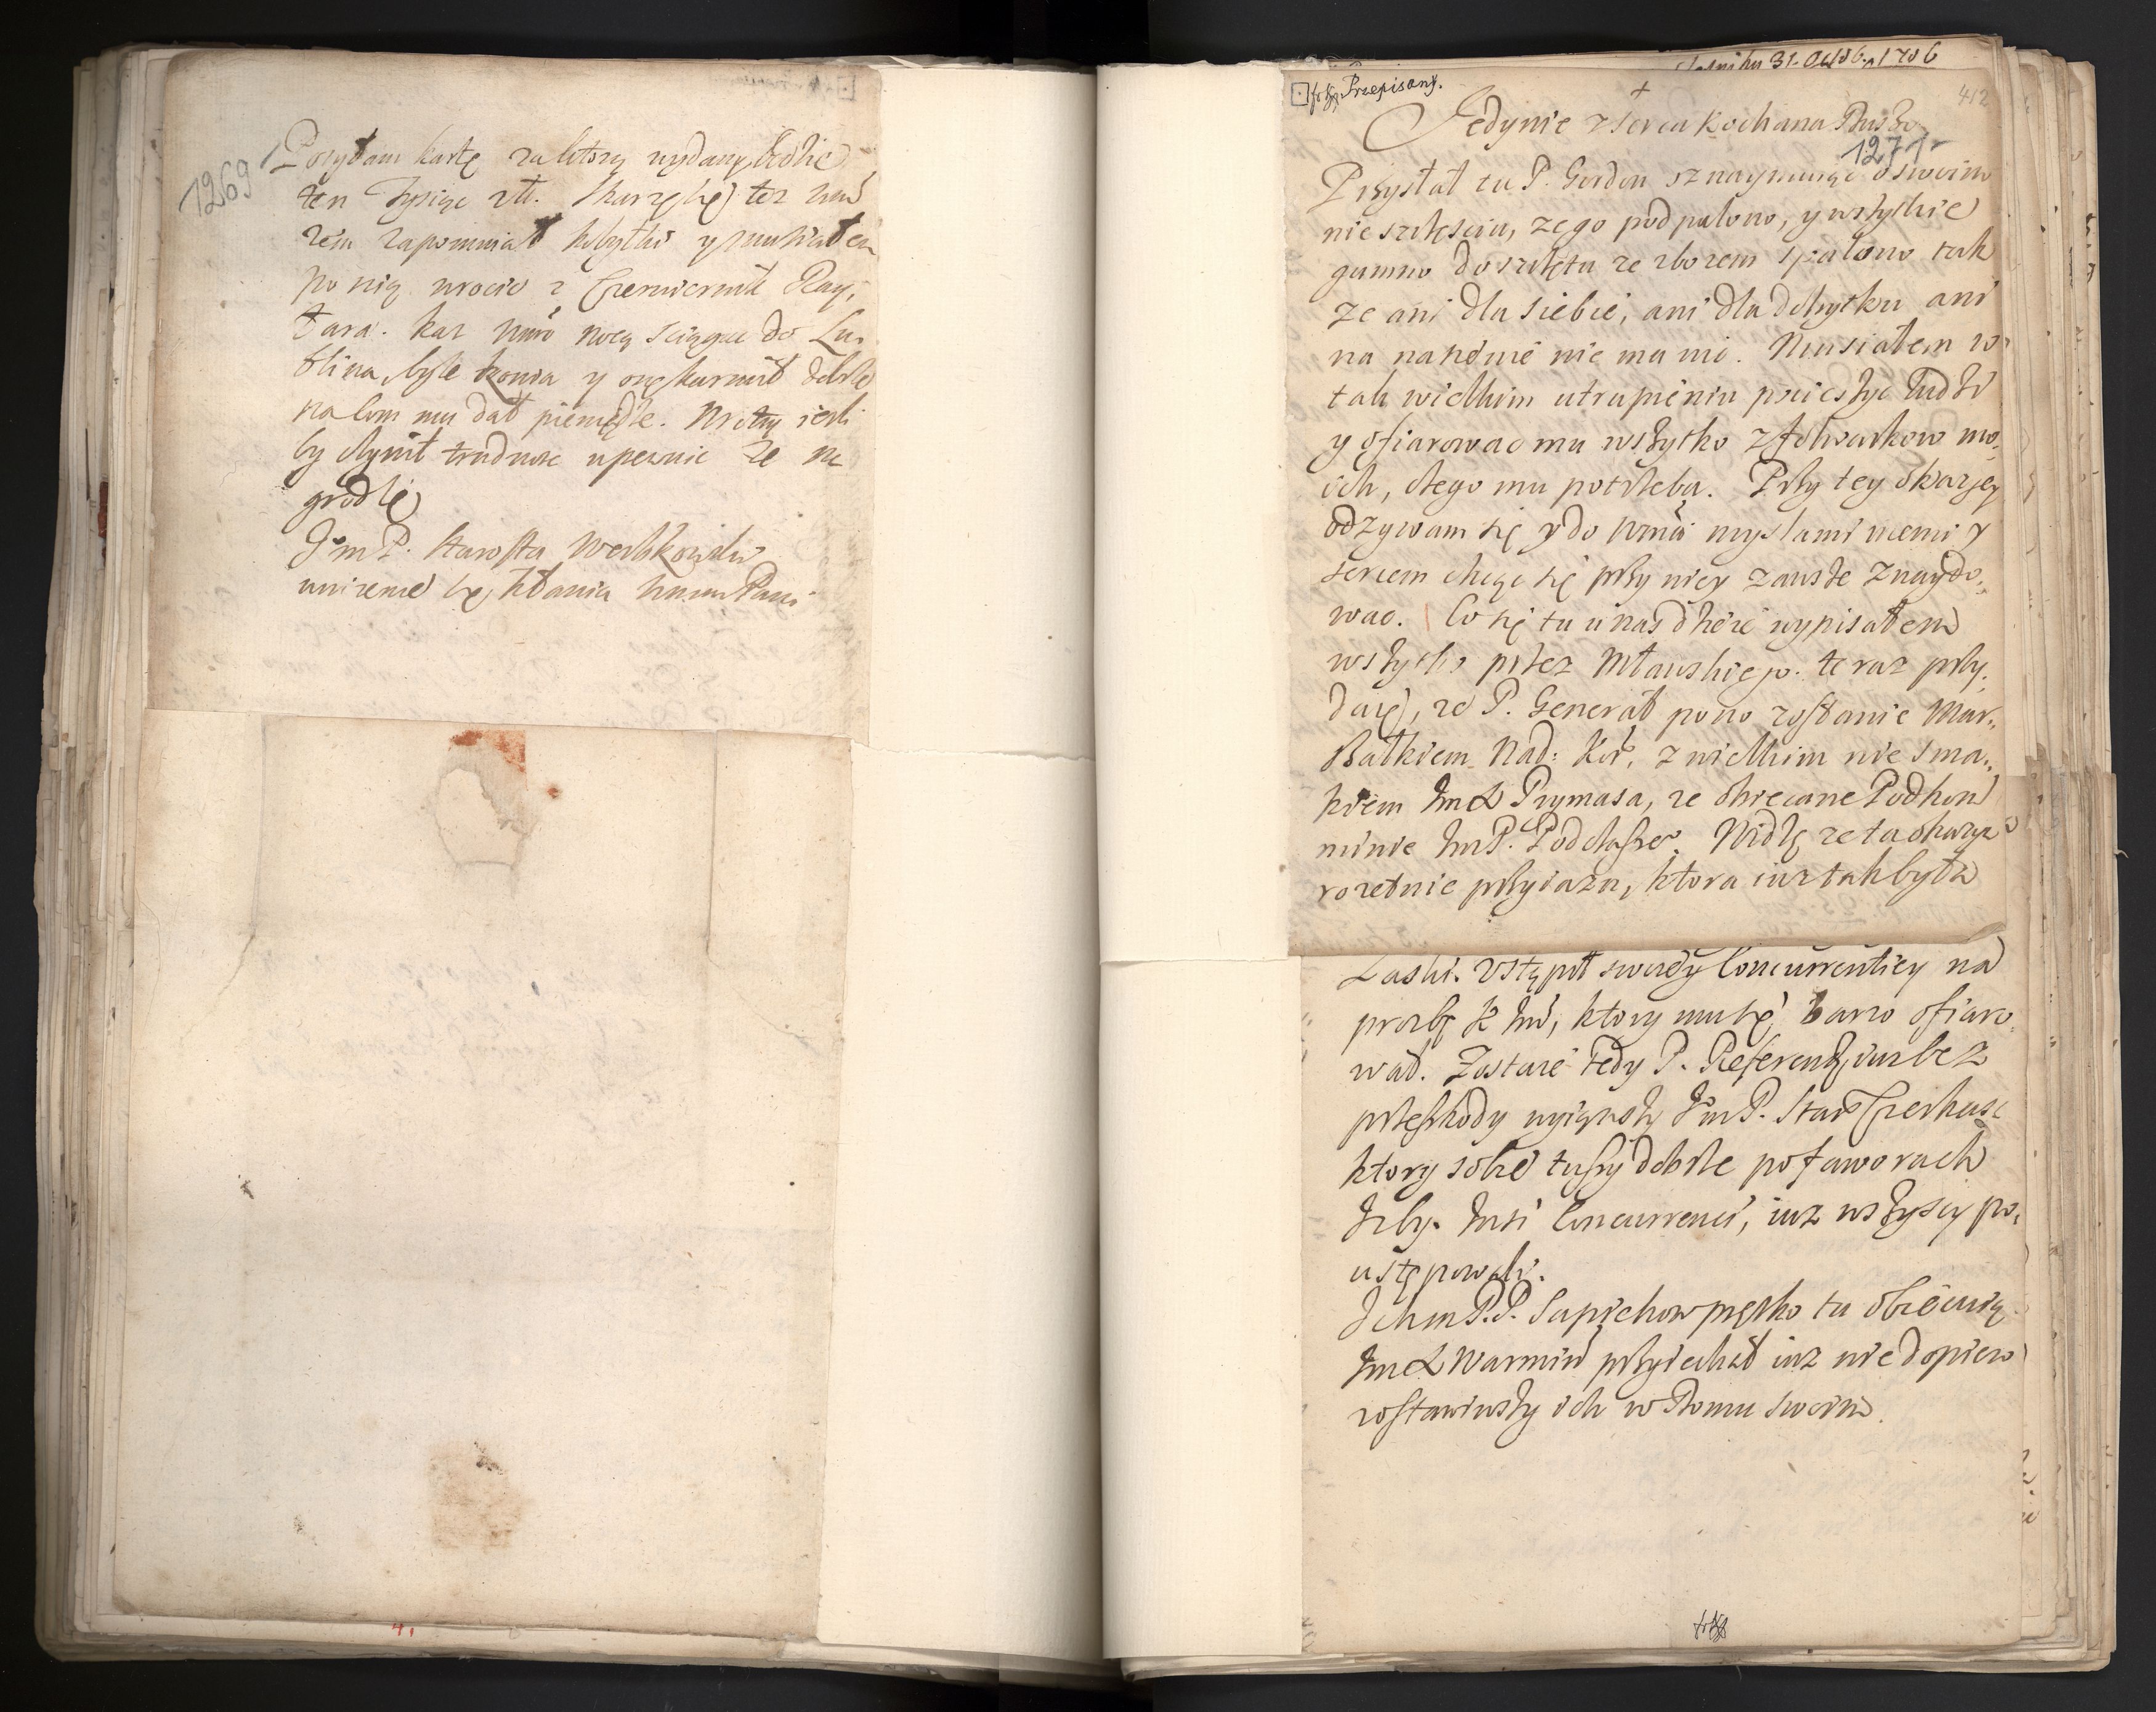 1269
Posyłam kartę za ktorą wydany będzie
ten tysiąc zł. Skarzę się też
zem zapomniał kobyłki y musiałem
po nią wrocic z Czerwiernik Ray,
tara. kaz nocą sciągac do Lu,
blina, byle konia y onę karmił dobrze
na com mu dał pieniądze. iesli
by czynił trudnosc upewnic ze na
grodzę
JmP. Starosta
unizenie się kłania
Jasniku 31. Octob. 1706
Przepisany.
412
Jedynie z Serca kochana Duszo
1271
Przysłał tu P. Gordon oznaymuiąc o swoim
nieszczęsciu, ze go podpalono, y wszystkie
gumno do szczętu ze zborem spalono tak
ze ani dla siebie, ani dla dobytku ani
na nasienie nie ma nic. Musiałem w
tak wielkim utrapieniu pocieszyc ludzi
y ofiarowac mu wszytko z folwarkow mo,
ich, czego mu potrzeba. Przy tey okazyey
odzywam się y do myslami memi y
sercem chcąc się przy niey zawsze znaydo,
wac. Co się tu u nas dzieie wypisałem
wszytko przez Mławskiego. teraz przy,
daię, ze P. Generał pono zostanie Mar,
szałkiem Nad: Kor. z wielkim niesma,
kiem Prymasa, ze obiecane Podkom
minie JmP. Podczasze. Widzę ze ta okazya
rozetnie przyiazn, ktora iuz tak była
Zaski. Ustąpił swoiey Concurrentiey na
prozbę K Jm, ktory mu się barzo ofiaro,
wał. Zostaie tedy P. Referend, iuz bez
przeszkody wyiąwszy JmP. Star Czerkas
ktory sobie tuszy dobrze po faworach
Jzby. Jnsi Concurrenci, iuz wszyscy po,
ustępowali.
Jchm P.P. Sapiehow prętko tu obiecuią.
Warmin przyiechał iuz nie dopiero
zostawiwszy ich w Domu swoim.